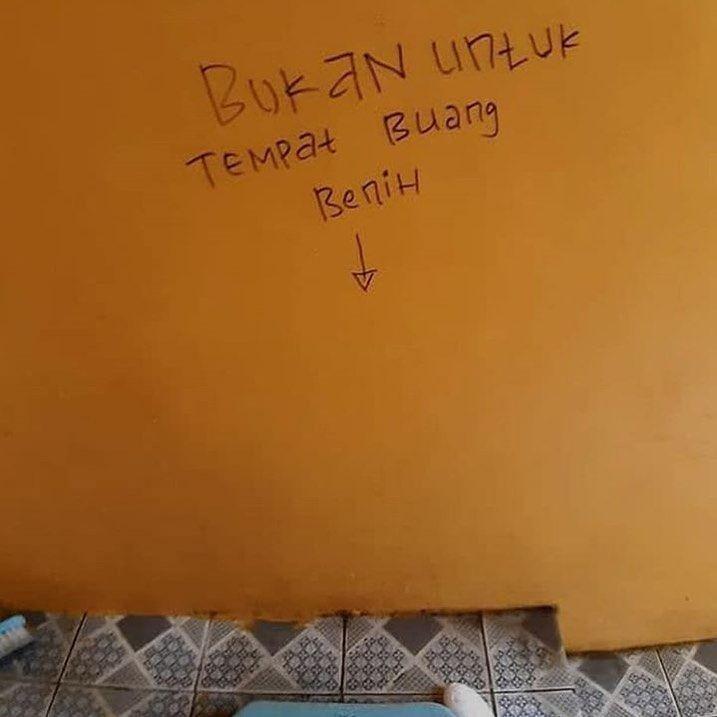 BUKAN UNTUK
TEMPat Buang
BeniH